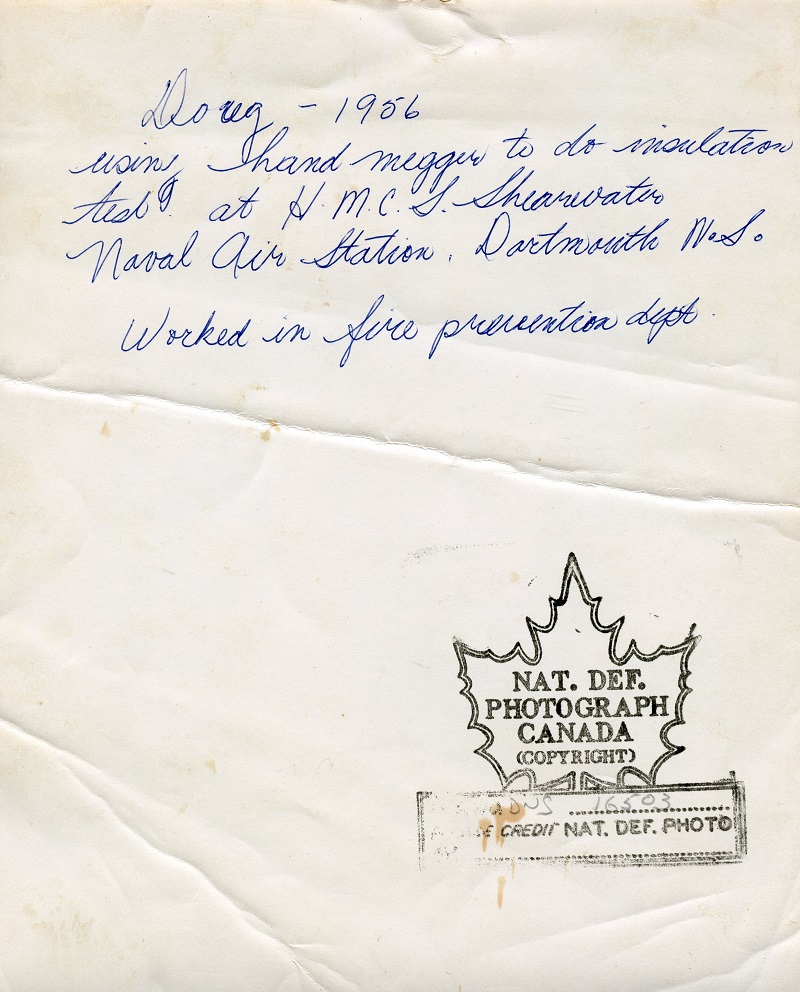 Doug - 1956
using hand megger to do insulation
test at H.M.C.S. Shearwater
Naval Air Station. Dartmouth N.S.
Worked in fire prevention dept.
NAT. DEF.
PHOTOGRAPH
CANADA
(COPYRIGHT)
DNS 16503
CREDIT NAT. DEF. PHOTO